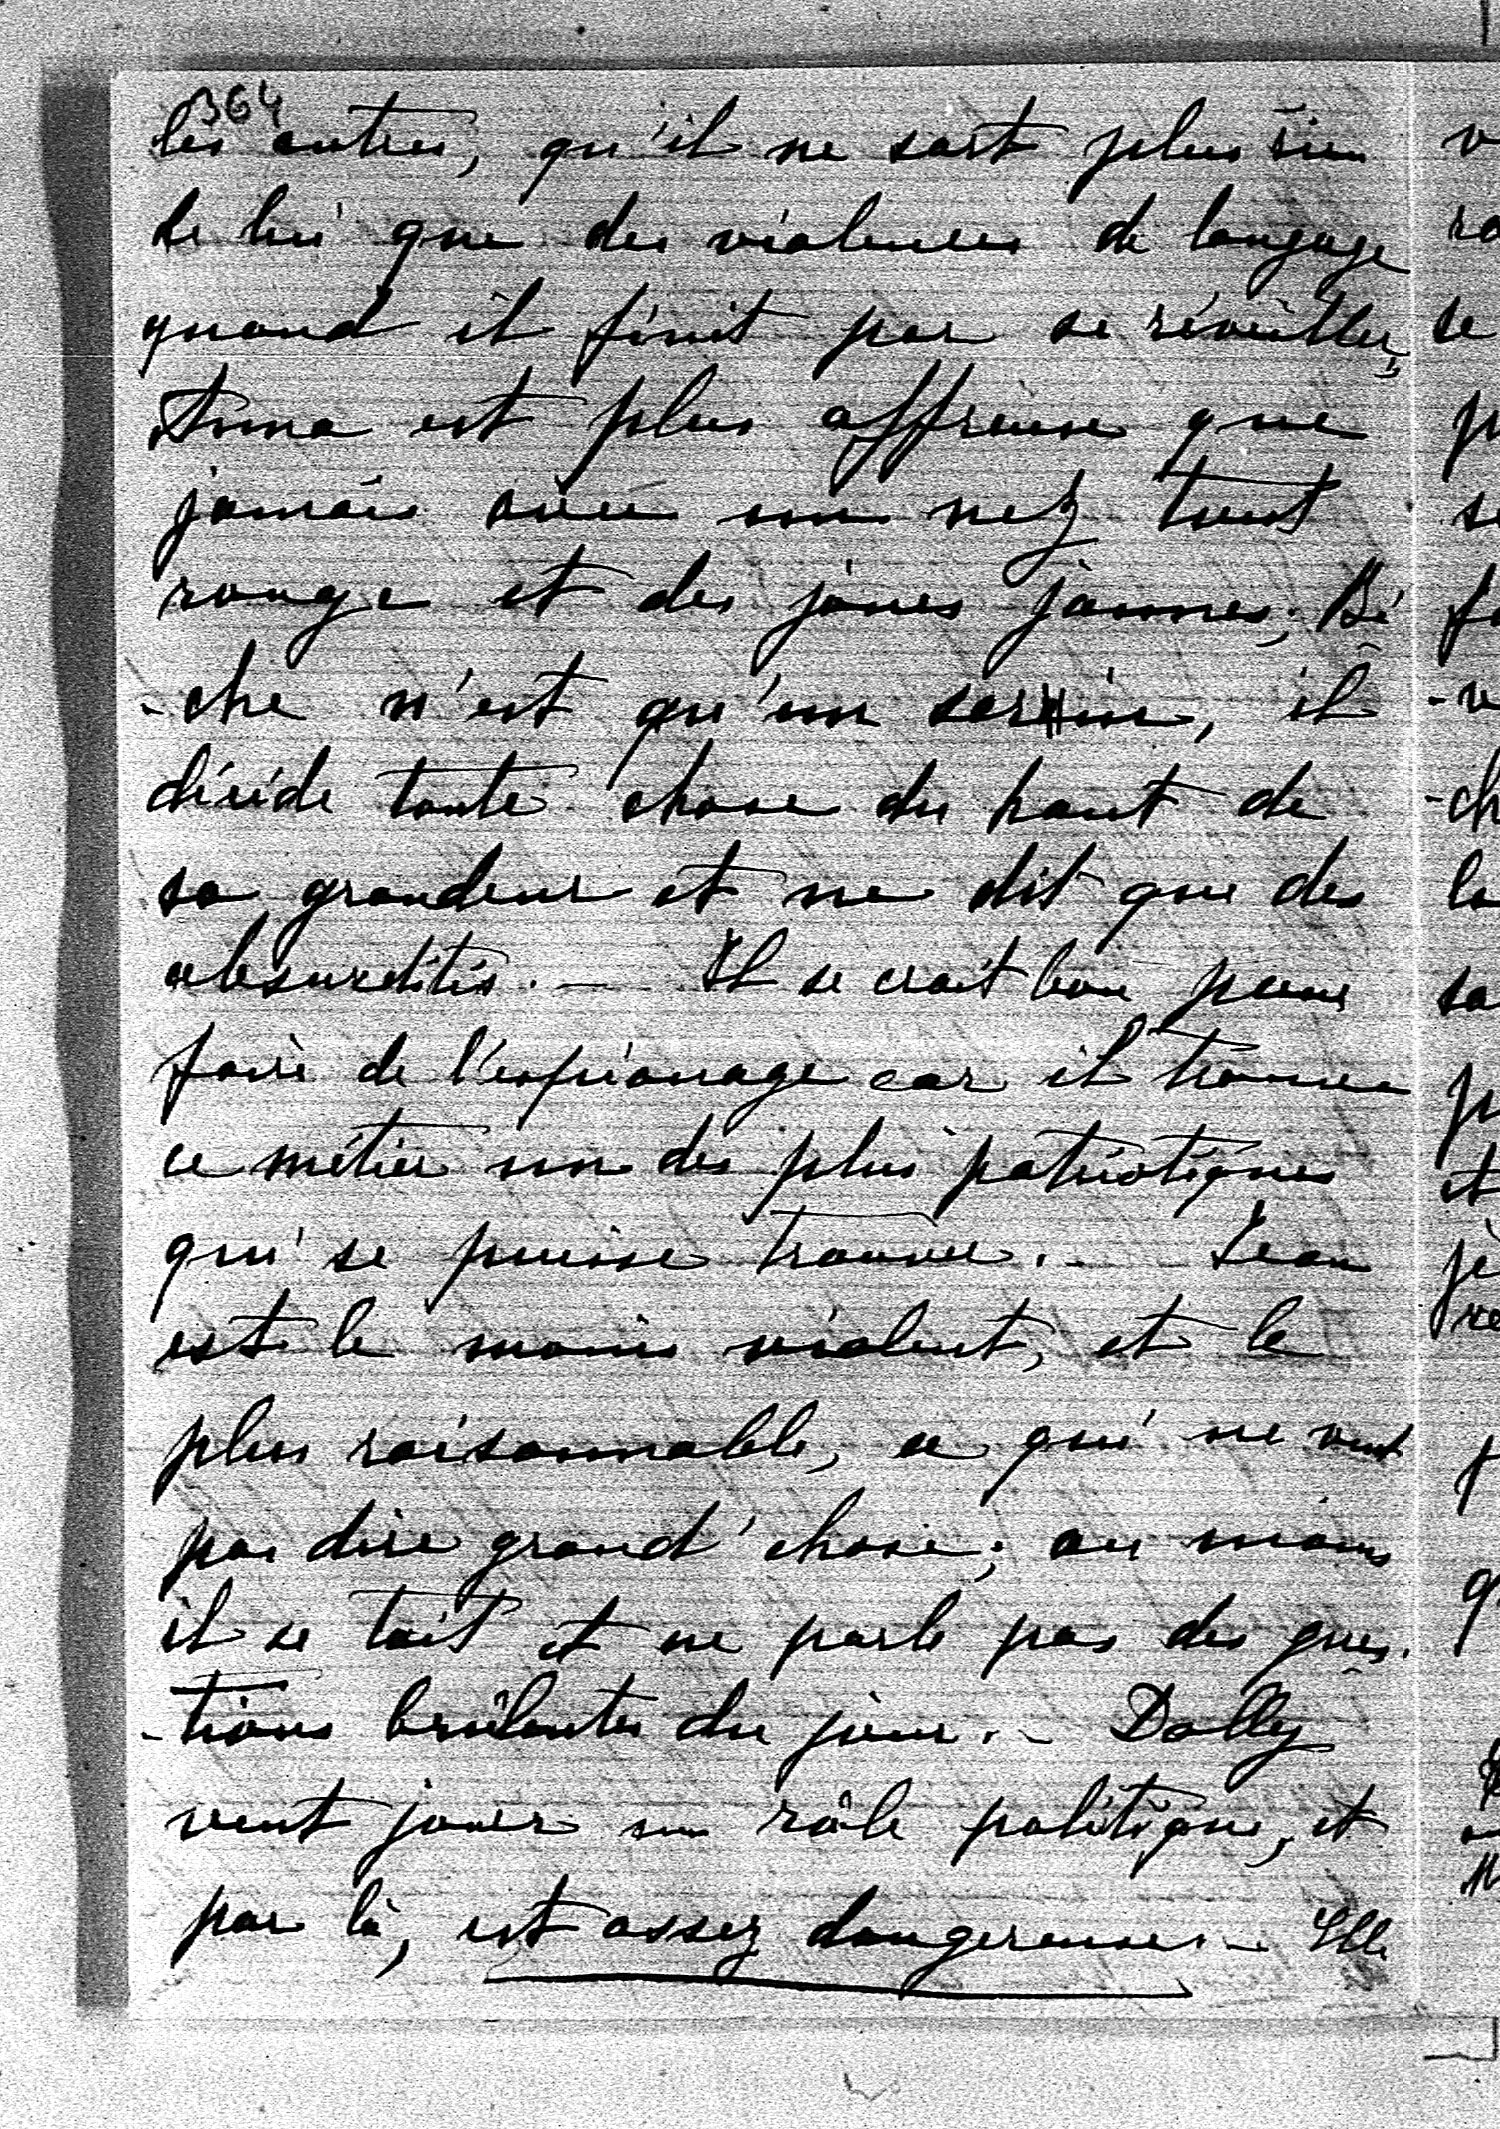 364
les autres, qu'il ne sort plus rien
de lui que des violences de langage
quand il finit par se réveiller,
Anna est plus affreuse que
jamais avec un nez tout
rouge et des joues jaunes; Bé
-che n'est qu'un serin, il
décide toute chose du haut de
sa grandeur et ne dit que des
absurdités. — Il se croit bon pour
faire de l'espionage car il trouve
ce métier un des plus patriotiques
qui se puisse trouver. — Jean
est le moins violent, et le
plus raisonnable, ce qui ne veut
pas dire grand'chose; au moins
il se tait et ne parle pas des ques-
-tions brûlantes du jour. — Dolly
veut jouer un rôle politique, et
par là, est assez dangereuse. — Elle